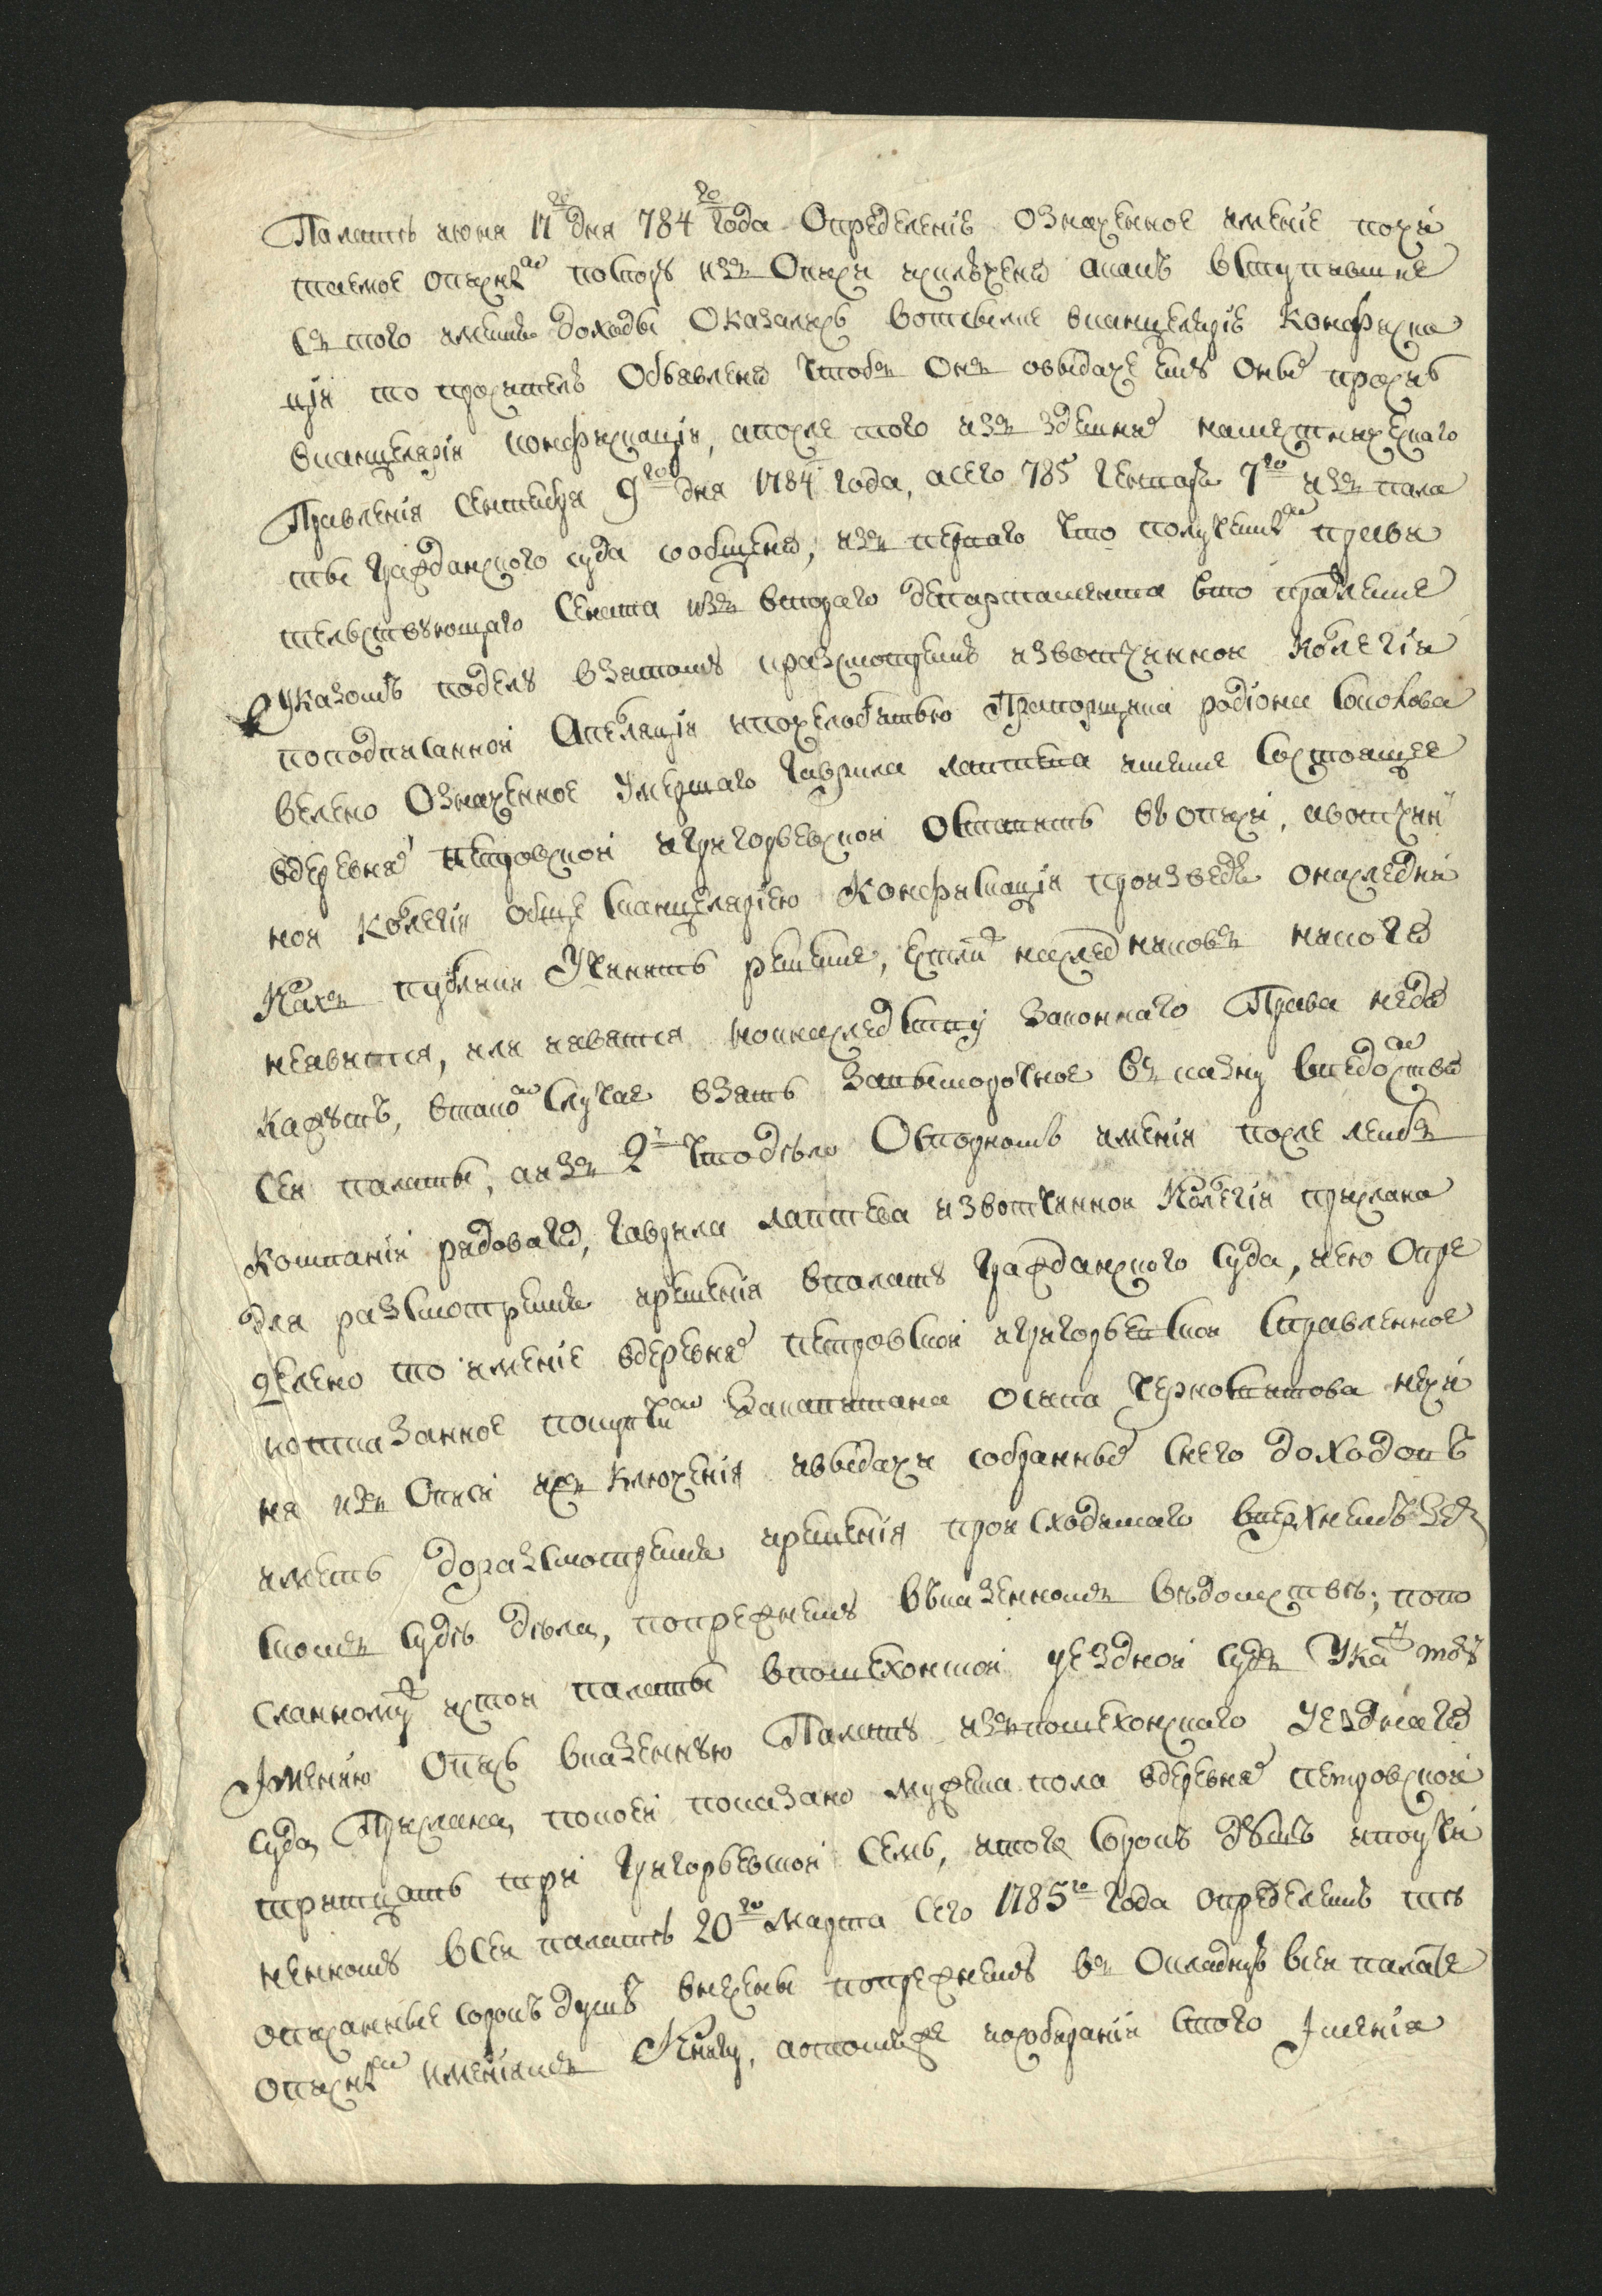 Палатѣ июня 17го дня 784го года Определеніе Означенное имение почи
таемое описнымъ потому изъ Описи изключено акакъ вступившие
съ того имения доходы Оказались вотсылке вканцелярію Конфиска
ціи то просителю Объявлено чтобъ Онъ овыдаче ему Оные просилъ
вканцеляріи конфискаціи, апосле того изъ здешняго наместническаго
Правленія Сентября 9го дня 1784 года, асего 785 генваря 7го изъ пала
ты гражданскаго суда сообщено, изъ перваго что полученнымъ правы
тельствующаго Сената изъ втораго департамента вто правление
Указомъ поделу взятому кразсмотрению извотчинной Колегіи
поподписанной Апеляціи ипочелобитью Прапорщика родіона Соколова
велено Означенное умершаго гаврила лаптева имение Состоящее
вдеревняхъ петровской игригорьевской Оставить въ описи, авотчин
ной Колегіи обще сканцеляріею Конфискаціи произведя онаследни
кахъ публики Учинить решение, естли наследниковъ никого
неявится, или явятся нокнаследству законнаго Права недо
кажутъ, втакомъ Случае взять Завымороченое въ казну введомство
Сей палаты, аизъ 2й что дело Оспорномъ имении после лейбъ
Компаніи рядоваго, гаврила лаптева извотчинной Колегіи прислано
для разсмотрения ирешения впалату гражданскаго Суда, иею Опре
делено то имение вдеревняхъ петровской игригорьевской Справленное
ноотказанное покупкою Закапитана осипа Чернокатова нечи
ня изъ Описи изключенія ивыдачи собранныхъ снего доходовъ
иметь доразсмотрения ирешенія происходящаго вверхнемъ зем
скомъ Суде дела, попрежнему въказенномъ ведомстве; попо
сланному изтой палаты впошехонской уездной Судъ Указу тому
Имению Опись вказенную Палату изъпошехонскаго Уезднаго
Суда Прислана, покоей показано мужеска пола вдеревняхъ петровской
тритцать три григорьевской Семь, итого Сорокъ душъ ипоучи
ненному вСей палате 20го марта сего 1785го года определению те
описанные сорокъ душъ внесены попрежнему въ Окладную всей палате
описнымъ имениямъ Книгу, апотому исобирании Стого Имения